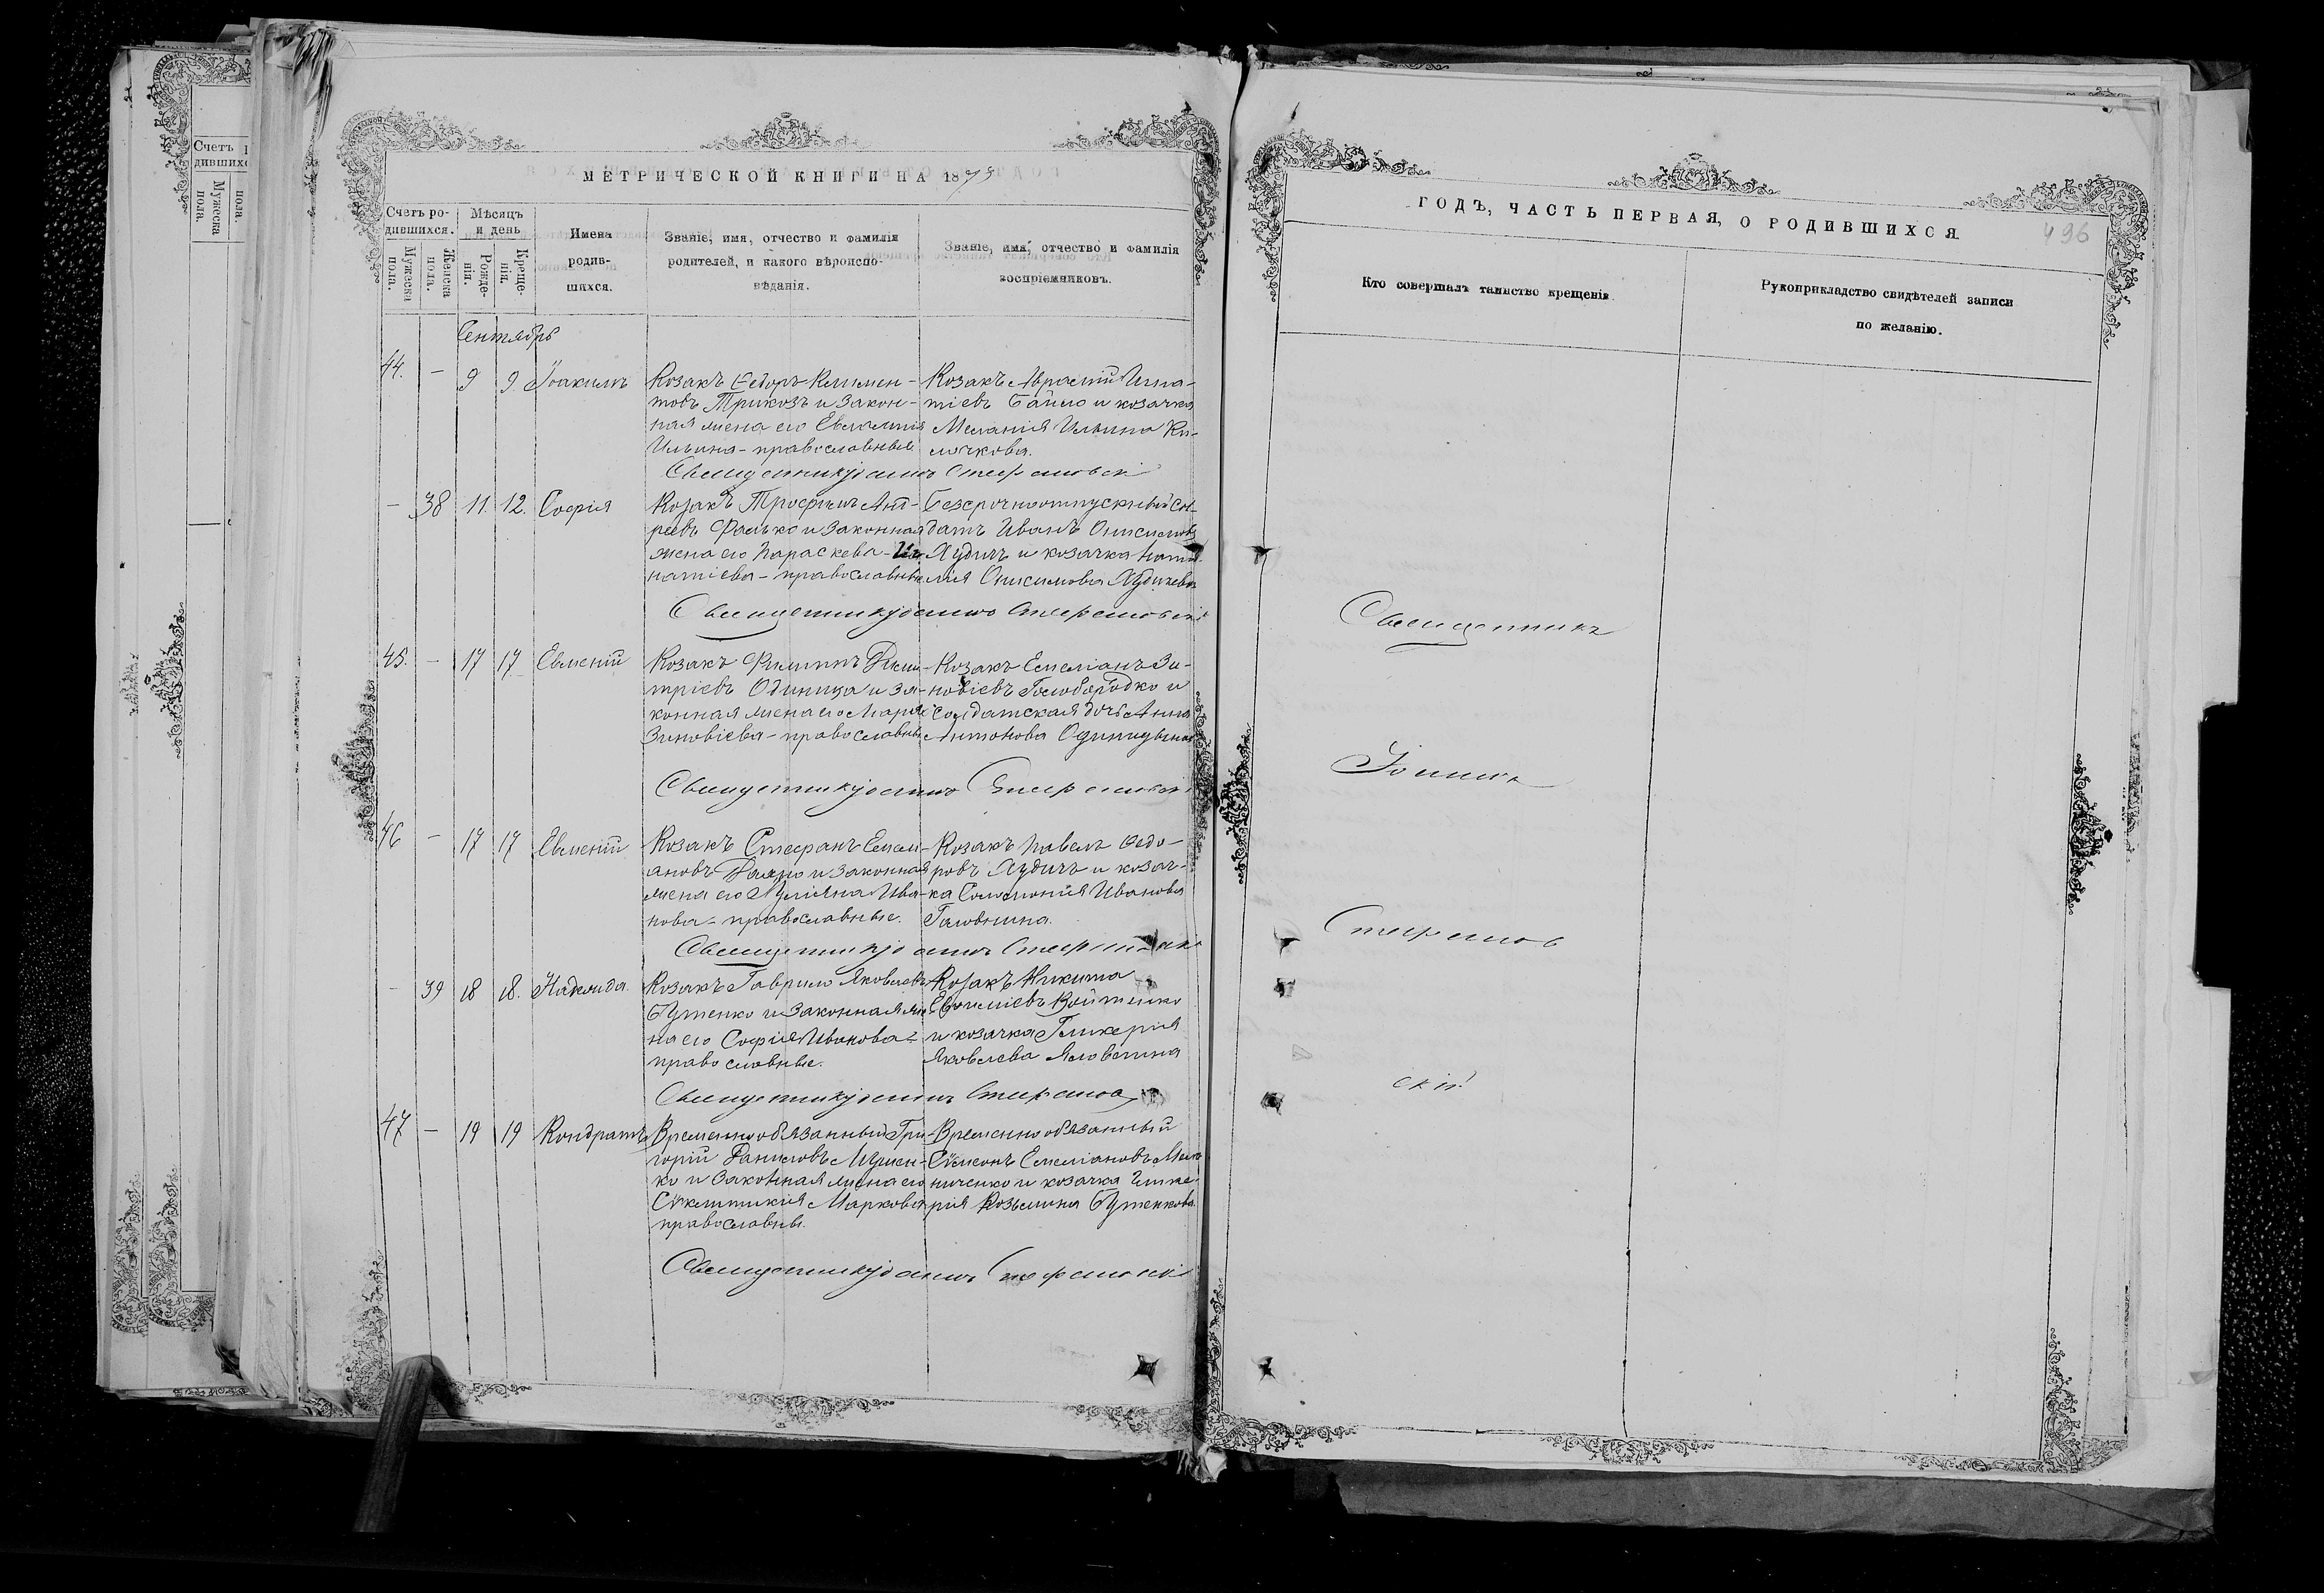 МЕТРИЧЕСКОЙ КНИГИ НА 1879
Счетъ ро-
дившихся.
Мѣсяцъ
и день
Мужеска
пола.
Женска
пола.
Рожде-
нія.
Креще-
нія.
Имена
родив-
шихся.
Званіе, имя, отчество и фамилія
родителей, и какого вѣроиспо-
вѣданія.
Званіе, имя, отчество и фамилія
воспріемниковъ.
Сентябрь
44. — 9 9 Іоакимъ
Козакъ Ѳедоръ Климен-
товъ Трикозъ и закон-
ная жена его Евгенія
Ильина - православные
Козакъ Игна-
тіевъ Байло и козачка
Меланія Ильина Ки-
лочкова.
Священникъ Іоаннъ Стефановскій
— 38 11. 12. Софія
Козакъ Трофимъ Анд-
реевъ Фалько и законная
жена его Параскева - Иг-
натіева - православные
Безсрочноотпускный сол-
датъ Иванъ Онисимовъ
Худичъ и козачка Ната-
лія Онисимова Худичева
Священникъ Іоаннъ Стефановскій
45. — 17 17 Евмений
Козакъ Филиппъ Дми-
тріевъ Одиница и за-
конная жена его Марія
Зиновіева - православные
Козакъ Емеліанъ Зи-
новіевъ Голобородко и
солдатская дочь Анна
Антонова Одиницына
Священникъ Іоаннъ Стефановскій
46 — 17 17 Евмений
Козакъ Стефанъ Емели-
ановъ и законная
жена его Иулияна Ива-
нова - православные.
Козакъ Павелъ Ѳедо-
ровъ Худичъ и козач-
ка Соломонія Иванова
Головнина.
Священникъ Іоаннъ Стефановскій
— 39 18 18. Надежда.
Козакъ Гаврило Яковлевъ
Бутенко и законная же-
на его Софія Иванова -
православные.
Козакъ Никита
Евфиміевъ Войтенко
и козачка Гликерія
Яковлева Яловенина
Священникъ Іоаннъ Стефановскій
47 — 19 19 Кондратъ
Временнообязанный Гри-
горій Даниловъ Ищен-
ко и законная жена его
Сѵнклитикія Маркова
православны.
Временнообязанный
Сѵмеонъ Емеліановъ Мель-
ниченко и козачка Глике-
рія Козьмина Бутенкова
Священникъ Іоаннъ Стефановскій
ГОДЪ, ЧАСТЬ ПЕРВАЯ, О РОДИВШИХСЯ
496
Кто совершалъ таинство крещенія.
Рукоприкладство свидѣтелей записи
по желанію.
Священникъ
Іоаннъ
Стефанов
скій
Счетъ
дившихс
Мужеска
пола.
пола.